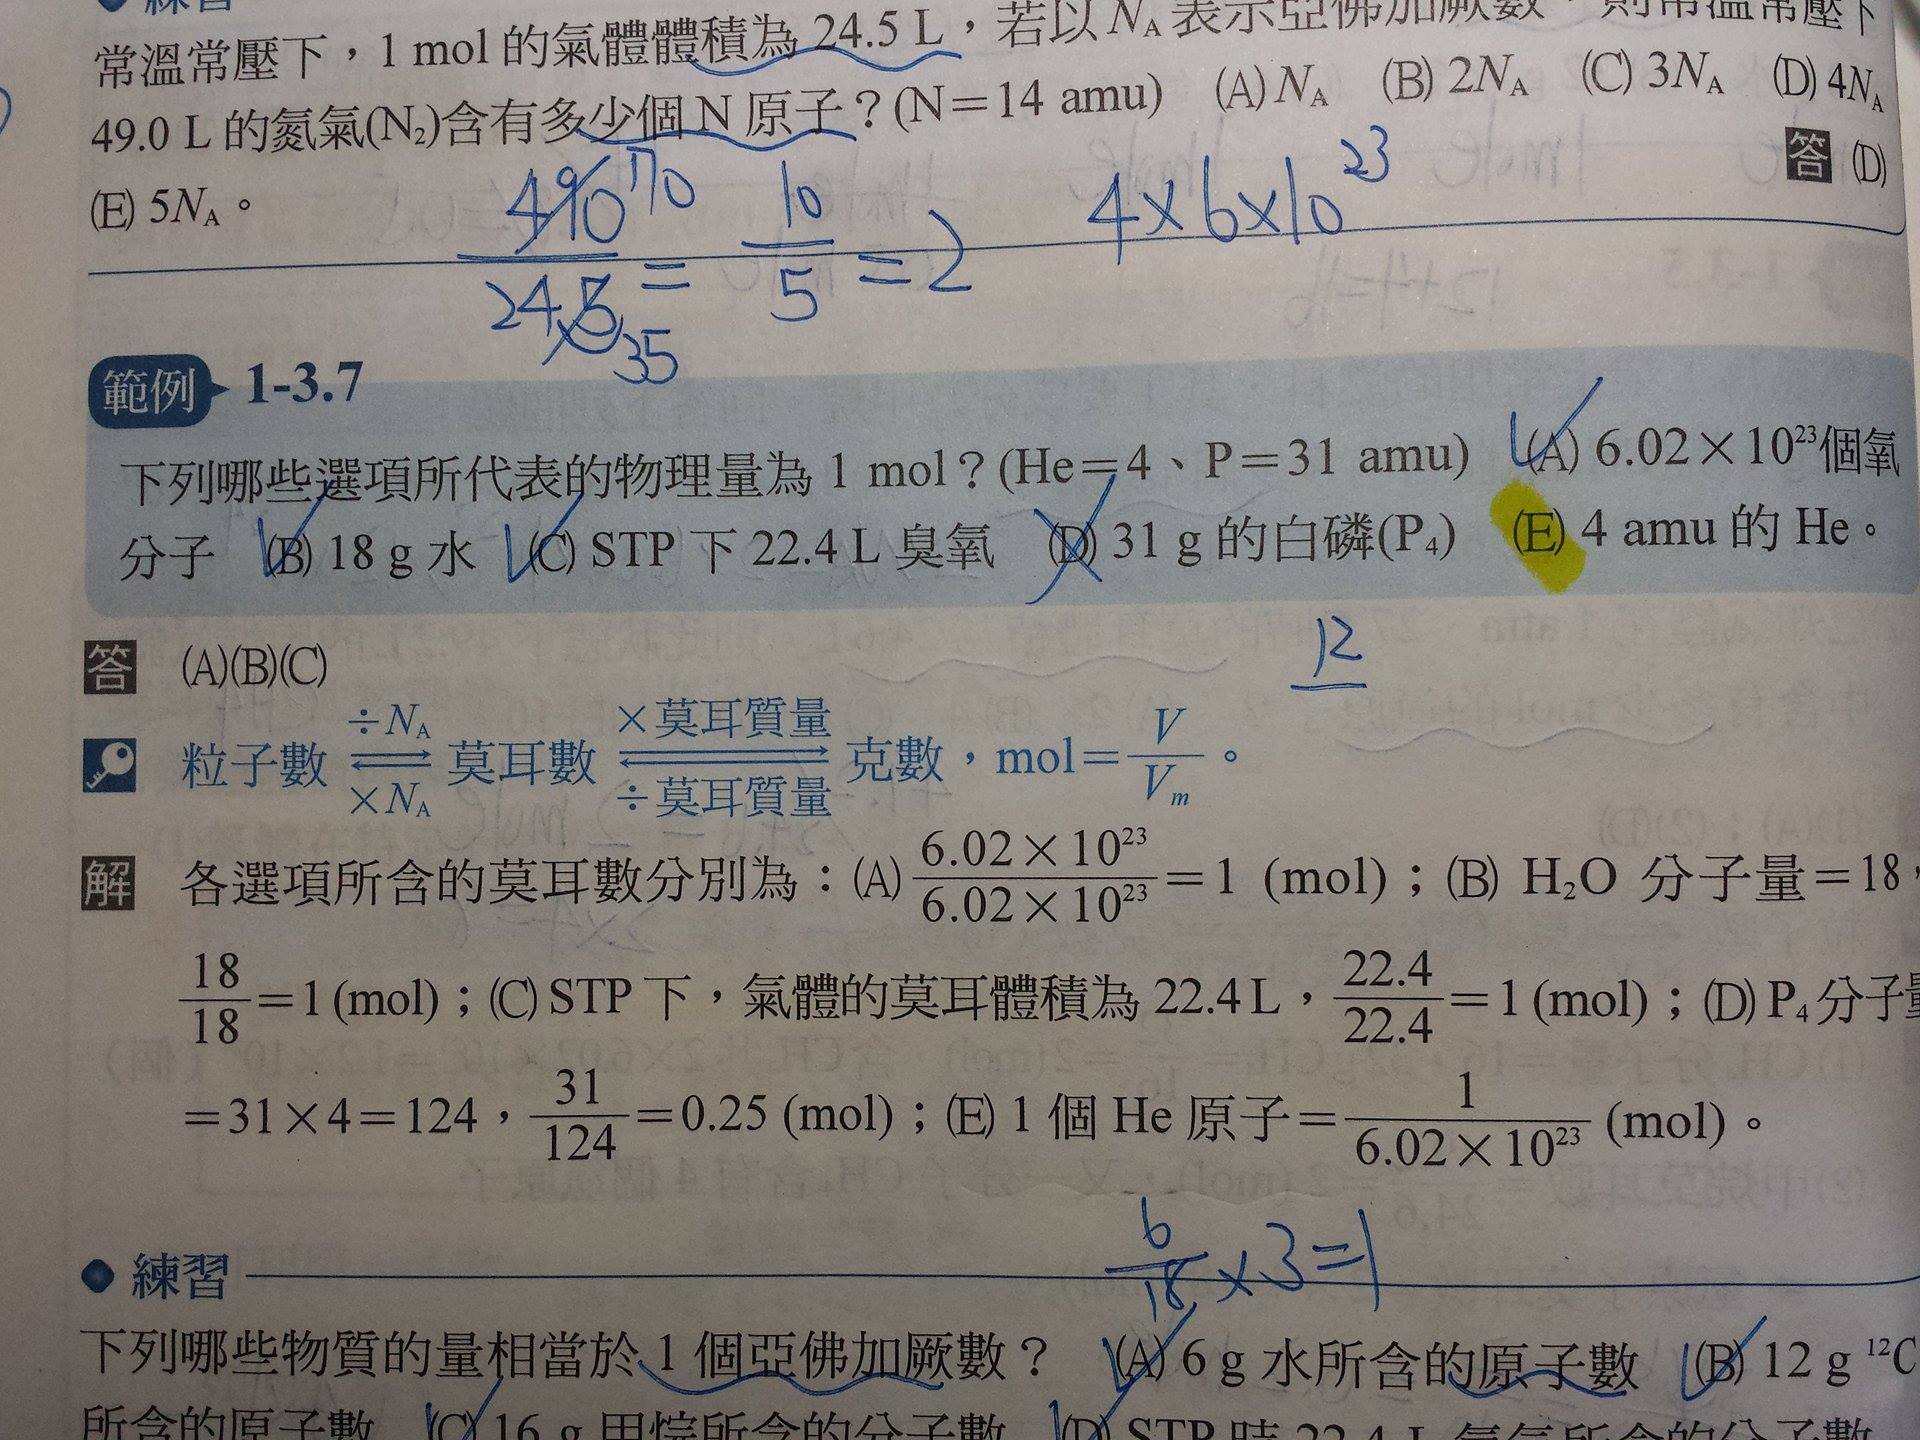 練習
常溫常壓下，1 mol 的氣體體積為 24.5 L，若以 NA 表示亞佛加厥數，則常溫常壓下
49.0 L 的氮氣(N₂)含有多少個 N 原子？(N＝14 amu) (A) NA (B) 2NA (C) 3NA (D) 4NA
(E) 5NA。 答 (D)
490 70 / 24.5 35 = 10/5 = 2 4×6×10²³
範例 1-3.7
下列哪些選項所代表的物理量為 1 mol？(He＝4、P＝31 amu) (A) 6.02×10²³個氧
分子 (B) 18 g 水 (C) STP 下 22.4 L 臭氧 (D) 31 g 的白磷(P₄) (E) 4 amu 的 He。
12
答 (A)(B)(C)
粒子數 ÷NA ⇌ ×NA 莫耳數 ×莫耳質量 ⇌ ÷莫耳質量 克數，mol＝V/Vm。
解 各選項所含的莫耳數分別為：(A) 6.02×10²³/6.02×10²³＝1 (mol)；(B) H₂O 分子量＝18，
18/18＝1 (mol)；(C) STP 下，氣體的莫耳體積為 22.4 L，22.4/22.4＝1 (mol)；(D) P₄ 分子量
＝31×4＝124，31/124＝0.25 (mol)；(E) 1 個 He 原子＝1/6.02×10²³ (mol)。
6/18×3=1
練習
下列哪些物質的量相當於 1 個亞佛加厥數？ (A) 6 g 水所含的原子數 (B) 12 g ¹²C
所含的原子數 (C) 16 g 甲烷所含的分子數 (D) STP 時 22.4 L 氧氣所含的分子數